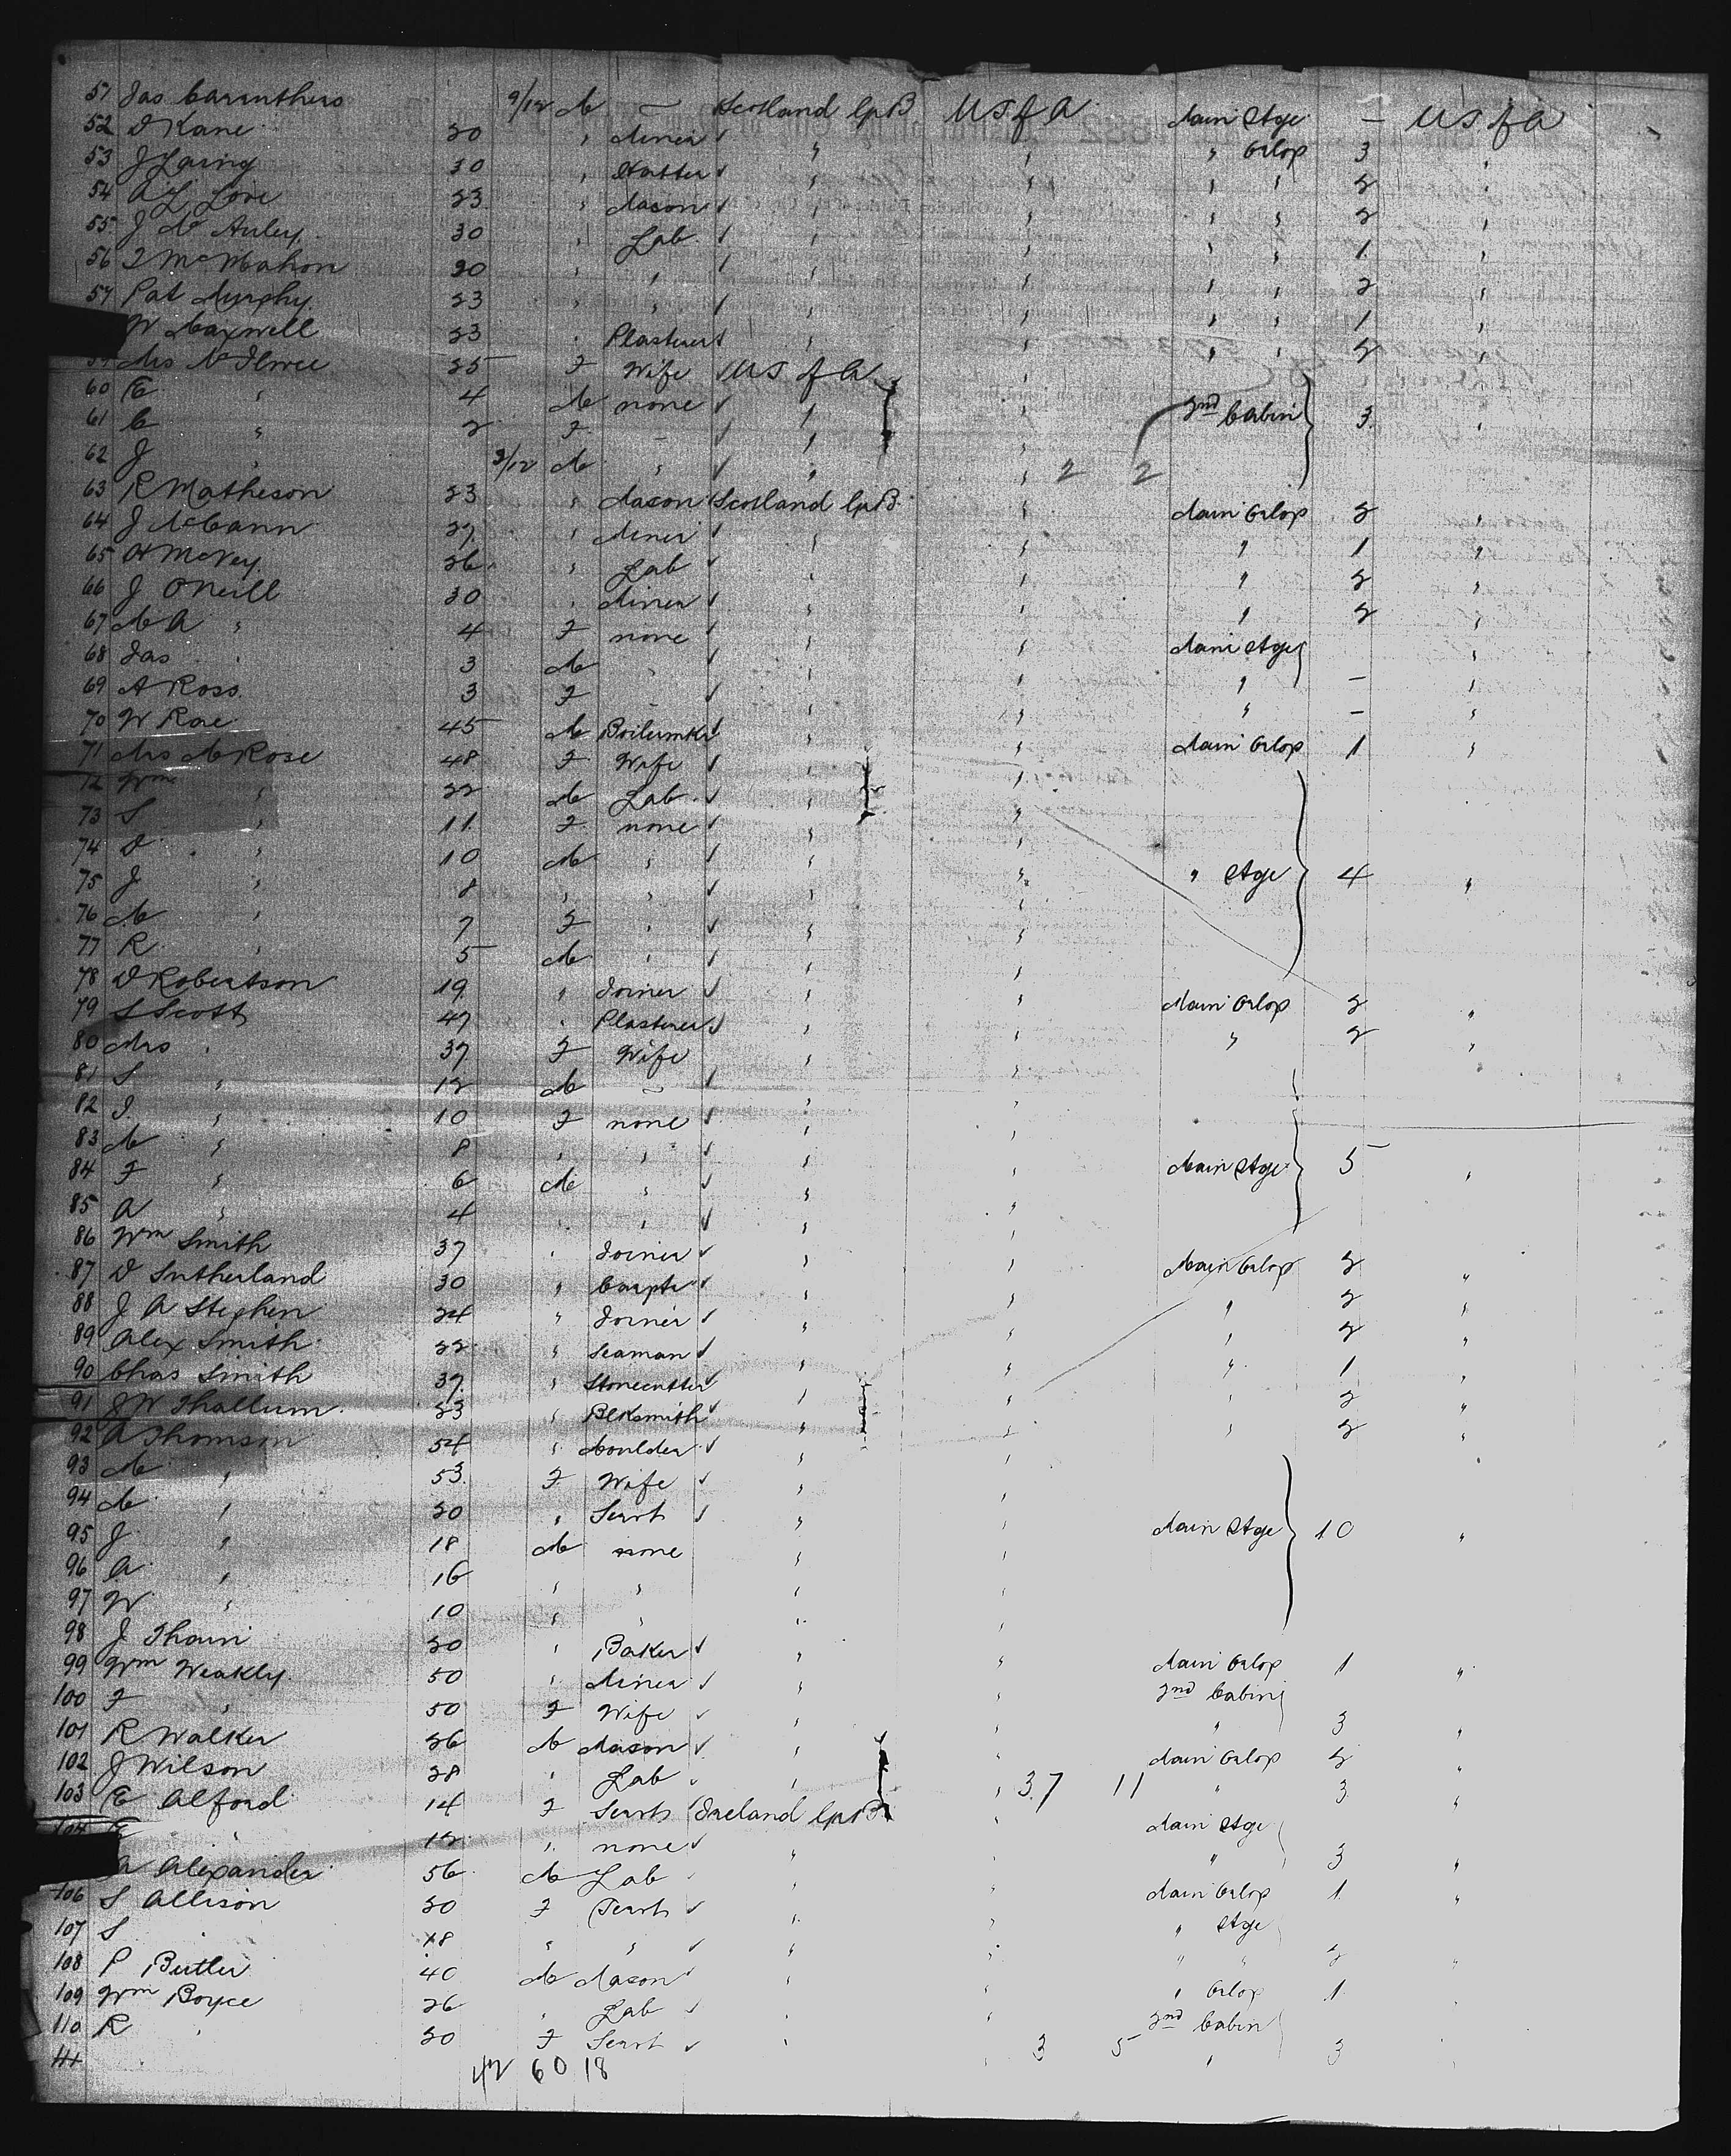 51 Jas Carruthers 9/12 M — Scotland GtB US of A Main Stge — US of A
52 D Kane 20 " Miner " " " Orlop 3 "
53 J Laing 30 " Hatter " " " " 2 "
54 A L Love 23 " Mason " " " " 2 "
55 J McAuley 30 " Lab " " " " 1 "
56 T McMahon 20 " " " " " " 2 "
57 Pat Murphy 23 " " " " " " 1 "
W Maxwell 23 " Plasterer " " " " 2 "
59 Mrs McIlwee 25 F Wife US of A "
60 E " 4 M none " " 2nd Cabin 3 "
61 C " 2 F " " "
62 J " 9/12 M " " " 2 2
63 R Matheson 23 " Mason Scotland GtB " Main Orlop 2 "
64 J McCann 27 " Miner " " " 1 "
65 H McVey 26 " Lab " " " 2 "
66 J ONeill 30 " Miner " " " 2 "
67 M A " 4 F none " " Main Stge
68 Jas " 3 M " " " " — "
69 A Ross 3 F " " " " — "
70 W Rae 45 M Boilermkr " " Main Orlop 1 "
71 Mrs M Rose 48 F Wife " "
72 Wm " 22 M Lab " "
73 S " 11 F none " "
74 D " 10 M " " " " Stge 4 "
75 J " 8 " " " "
76 M " 7 F " " "
77 R " 5 M " " "
78 D Robertson 19 " Joiner " " Main Orlop 2 "
79 S Scott 47 " Plasterer " " " 2 "
80 Mrs " 37 F Wife " "
81 S " 12 M — " "
82 I " 10 F none " "
83 M " 8 " " " " Main Stge 5 "
84 F " 6 M " " "
85 A " 4 " " " "
86 Wm Smith 37 " Joiner " " Main Orlop 2 "
87 D Sutherland 30 " Carptr " " " 2 "
88 J A Stephen 24 " Joiner " " " 2 "
89 Alex Smith 22 " Seaman " " " 1 "
90 Chas Smith 37 " Stonecutter " " " 2 "
91 J W Thallum 23 " Blksmith " " " 2 "
92 A Thomson 54 " Moulder " "
93 M " 53 F Wife " "
94 M " 20 " Servt " "
95 J " 18 M none " " Main Stge 10 "
96 A " 16 " " " "
97 W " 10 " " " "
98 J Thain 20 " Baker " " Main Orlop 1 "
99 Wm Weakly 50 " Miner " " 2nd Cabin
100 F " 50 F Wife " " " 3 "
101 R Walker 26 M Mason " " Main Orlop 2 "
102 J Wilson 28 " Lab " " 37 11 " 3 "
103 E Alford 14 F Servt Ireland GtB " Main Stge
104 E " 12 " none " " " 3 "
A Alexander 56 M Lab " " Main Orlop 1 "
106 S Allison 20 F Servt " " " Stge
107 S 18 " " " " " " 2 "
108 P Butler 40 M Mason " " " Orlop 1 "
109 Wm Boyce 26 " Lab " " 2nd Cabin
110 R " 20 F Servt " " 3 5 " 3 "
111
42 60 18